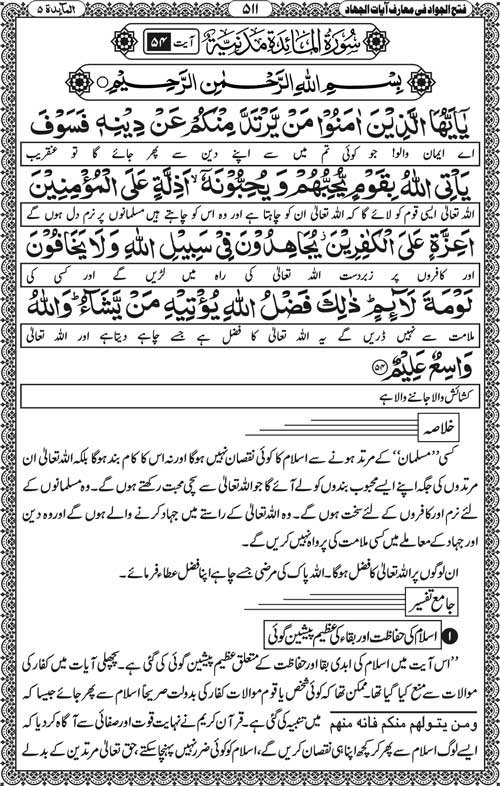 فتح الجواد فی معارف آیات الجہاد
۵۱۱
المآئدۃ ۵
سُوْرَۃُ الْمَآئِدَۃِ مَدَنِیَّۃٌ آیت ۵۴
بِسْمِ اللهِ الرَّحْمٰنِ الرَّحِیْمِ
یٰۤاَیُّهَا الَّذِیْنَ اٰمَنُوْا مَنْ یَّرْتَدَّ مِنْكُمْ عَنْ دِیْنِهٖ فَسَوْفَ
اے ایمان والو! جو کوئی تم میں سے اپنے دین سے پھر جائے گا تو عنقریب
یَاْتِی اللهُ بِقَوْمٍ یُّحِبُّهُمْ وَ یُحِبُّوْنَهٗۤ ۙ اَذِلَّةٍ عَلَی الْمُؤْمِنِیْنَ
اللہ تعالیٰ ایسی قوم کو لائے گا کہ اللہ تعالیٰ ان کو چاہتا ہے اور وہ اس کو چاہتے ہیں مسلمانوں پر نرم دل ہوں گے
اَعِزَّةٍ عَلَی الْكٰفِرِیْنَ ؗ یُجَاهِدُوْنَ فِیْ سَبِیْلِ اللهِ وَ لَا یَخَافُوْنَ
اور کافروں پر زبردست اللہ تعالیٰ کی راہ میں لڑیں گے اور کسی کی
لَوْمَةَ لَآئِمٍ ؕ ذٰلِكَ فَضْلُ اللهِ یُؤْتِیْهِ مَنْ یَّشَآءُ ؕ وَ اللهُ
ملامت سے نہیں ڈریں گے یہ اللہ تعالیٰ کا فضل ہے جسے چاہے دیتا ہے اور اللہ تعالیٰ
وَاسِعٌ عَلِیْمٌ ۵۴
کشائش والا جاننے والا ہے
خلاصہ
کسی ’’مسلمان‘‘ کے مرتد ہونے سے اسلام کا کوئی نقصان نہیں ہوگا اور نہ اس کا کام بند ہوگا بلکہ اللہ تعالیٰ ان
مرتدوں کی جگہ اپنے ایسے محبوب بندوں کو لے آئے گا جو اللہ تعالیٰ سے سچی محبت رکھتے ہوں گے۔ وہ مسلمانوں کے
لئے نرم اور کافروں کے لئے سخت ہوں گے۔ وہ اللہ تعالیٰ کے راستے میں جہاد کرنے والے ہوں گے اور وہ دین
اور جہاد کے معاملے میں کسی ملامت کی پرواہ نہیں کریں گے۔
ان لوگوں پر اللہ تعالیٰ کا فضل ہوگا۔ اللہ پاک کی مرضی جسے چاہے اپنا فضل عطاء فرمائے۔
جامع تفسیر
۱ اسلام کی حفاظت اور بقاء کی عظیم پیشین گوئی
’’اس آیت میں اسلام کی ابدی بقا اور حفاظت کے متعلق عظیم پیشین گوئی کی گئی ہے۔ پچھلی آیات میں کفار کی
موالات سے منع کیا گیا تھا۔ ممکن تھا کہ کوئی شخص یا قوم موالات کفار کی بدولت صریحاً اسلام سے پھر جائے جیسا کہ
ومن یتولهم منکم فانه منهم میں تنبیہ کی گئی ہے۔ قرآن کریم نے نہایت قوت اور صفائی سے آگاہ کردیا کہ
ایسے لوگ اسلام سے پھر کر کچھ اپنا ہی نقصان کریں گے، اسلام کو کوئی ضرر نہیں پہنچا سکتے، حق تعالیٰ مرتدین کے بدلے